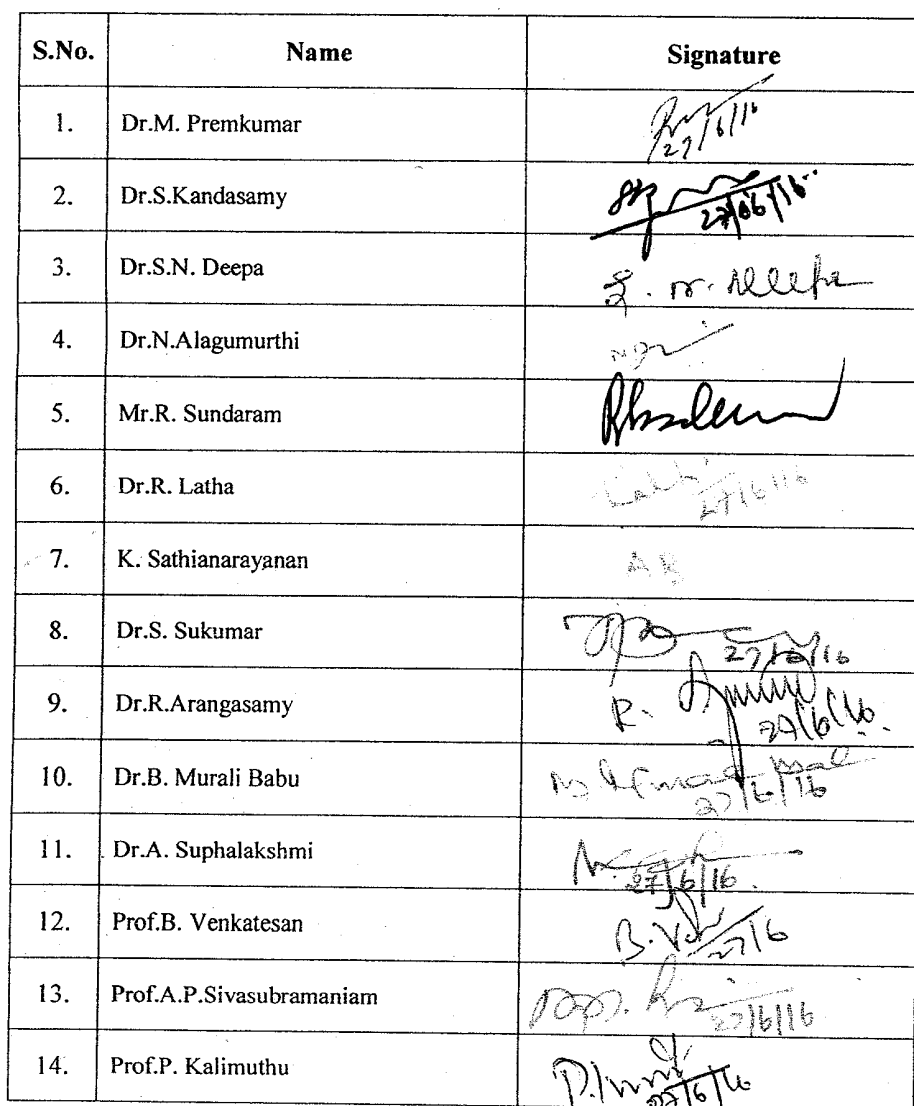 S.No. Name Signature
1. Dr.M. Premkumar 27/6/16
2. Dr.S.Kandasamy 27/06/16
3. Dr.S.N. Deepa S. N. Deepa
4. Dr.N.Alagumurthi
5. Mr.R. Sundaram
6. Dr.R. Latha 27/6/16
7. K. Sathianarayanan
8. Dr.S. Sukumar 27/6/16
9. Dr.R.Arangasamy R. 27/6/16
10. Dr.B. Murali Babu 27/6/16
11. Dr.A. Suphalakshmi 27/6/16
12. Prof.B. Venkatesan B. 27/6
13. Prof.A.P.Sivasubramaniam 27/6/16
14. Prof.P. Kalimuthu 27/6/16